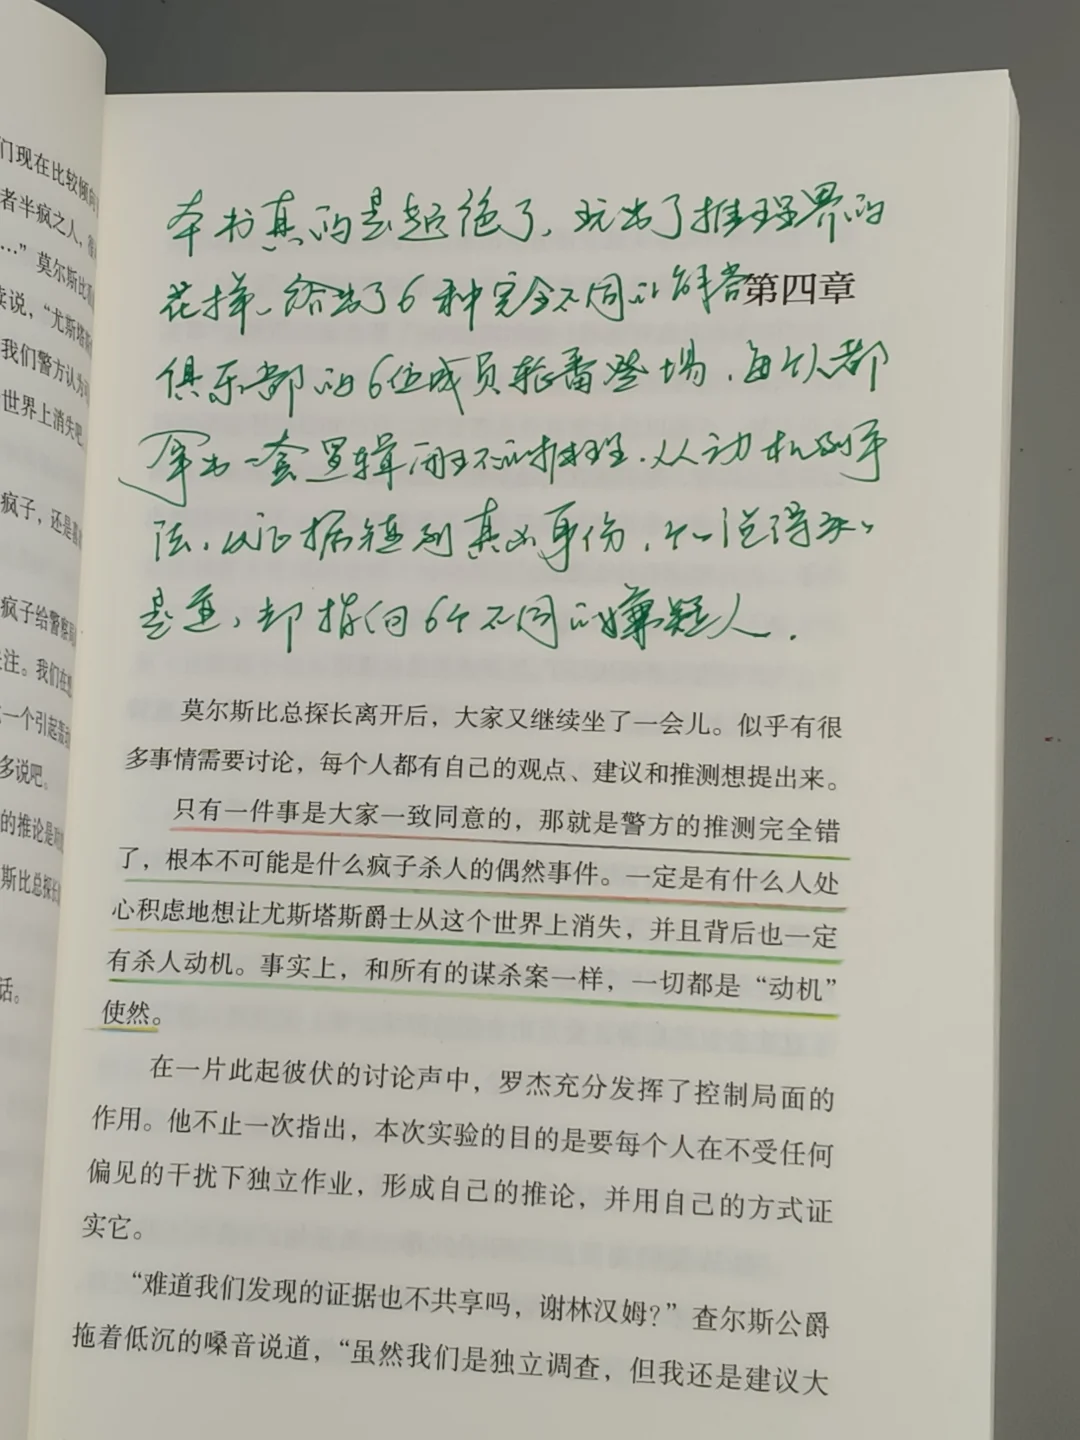 们现在比较倾向
者半疯之人，
…”莫尔斯比
读说，“尤斯塔斯
我们警方认为
世界上消失吧
疯子，还是
疯子给警察局
关注。我们在想
一个引起轰动
多说吧。
的推论是
斯比总探长
话。
本书真的是超绝了，玩出了推理界的
花样、给出了6种完全不同的解答
第四章
俱乐部的6位成员轮番登场，每个人都
拿出一套逻辑闭环的推理，从动机到手
法，从证据链到真凶身份，个个说得头头
是道，却指向6个不同的嫌疑人．
莫尔斯比总探长离开后，大家又继续坐了一会儿。似乎有很
多事情需要讨论，每个人都有自己的观点、建议和推测想提出来。
只有一件事是大家一致同意的，那就是警方的推测完全错
了，根本不可能是什么疯子杀人的偶然事件。一定是有什么人处
心积虑地想让尤斯塔斯爵士从这个世界上消失，并且背后也一定
有杀人动机。事实上，和所有的谋杀案一样，一切都是“动机”
使然。
在一片此起彼伏的讨论声中，罗杰充分发挥了控制局面的
作用。他不止一次指出，本次实验的目的是要每个人在不受任何
偏见的干扰下独立作业，形成自己的推论，并用自己的方式证
实它。
“难道我们发现的证据也不共享吗，谢林汉姆？”查尔斯公爵
拖着低沉的嗓音说道，“虽然我们是独立调查，但我还是建议大